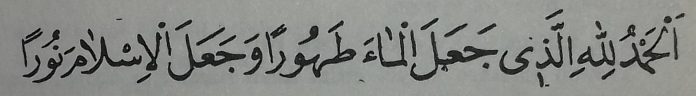 اَلْحَمْدُ لِلّٰهِ الَّذِی جَعَلَ الْمَاءَ طَهُوْرًا وَجَعَلَ الْاِسْلَامَ نُوْرًا